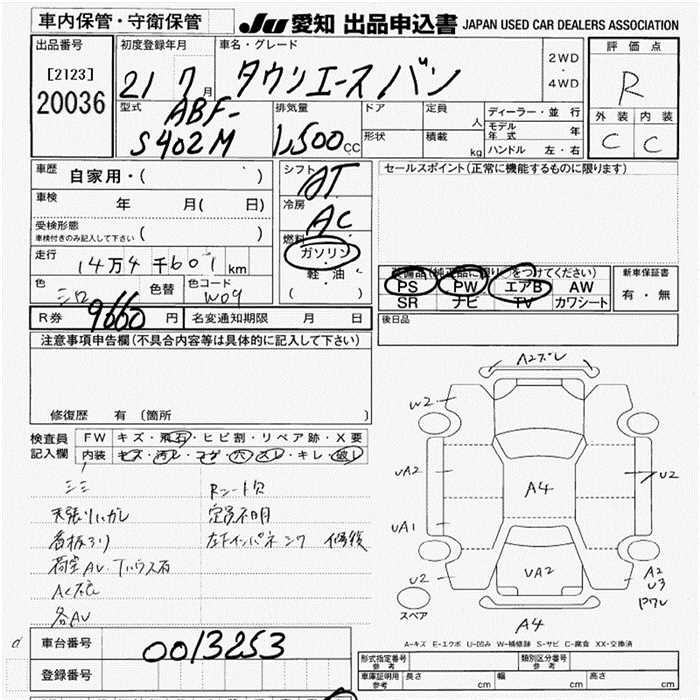 車内保管・守衛保管
JU 愛知 出品申込書 JAPAN USED CAR DEALERS ASSOCIATION
出品番号
[2123]
20036
初度登録年月
21 7月
車名・グレード
タウンエースバン
2WD
・
4WD
評価点
R
外装 内装
C C
型式
ABF-
S402M
排気量
1,500CC
ドア
形状
定員 人
積載 kg
ディーラー・並行
モデル年式 年
ハンドル 左・右
車歴 自家用・( )
車検 年 月( 日)
受検形態
車検付きのみ記入して下さい ( )
走行 14万4千601km
色 シロ 色替 色コード W09
R券 9660円 名変通知期限 月 日
シフト AT
冷房 AC
燃料
ガソリン
軽・油
( )
セールスポイント(正常に機能するものに限ります)
装備品(純正品に限り○をつけてください)
PS PW エアB AW
SR ナビ TV カワシート
新車保証書
有・無
後日品
注意事項申告欄(不具合内容等は具体的に記入して下さい)
修復歴 有(箇所 )
検査員
記入欄
FW キズ・飛石・ヒビ割・リペア跡・X要
内装 キズ・汚レ・コゲ・穴・スレ・キレ・破レ
シミ
Rシート欠
天張りハガレ
定員不明
看板ヌリ
荷室AV
各AV
A2ズレ
W2
UA2
UA1
U2
A4
UA2
U2
A2
U3
A4
スペア
A-キズ E-エクボ U-凹み W-補修跡 S-サビ C-腐食 XX-交換済
車台番号 0013253
登録番号
形式指定番号
参考
類別区分番号
参考
車庫証明用
参考
長さ cm 幅 cm 高さ cm